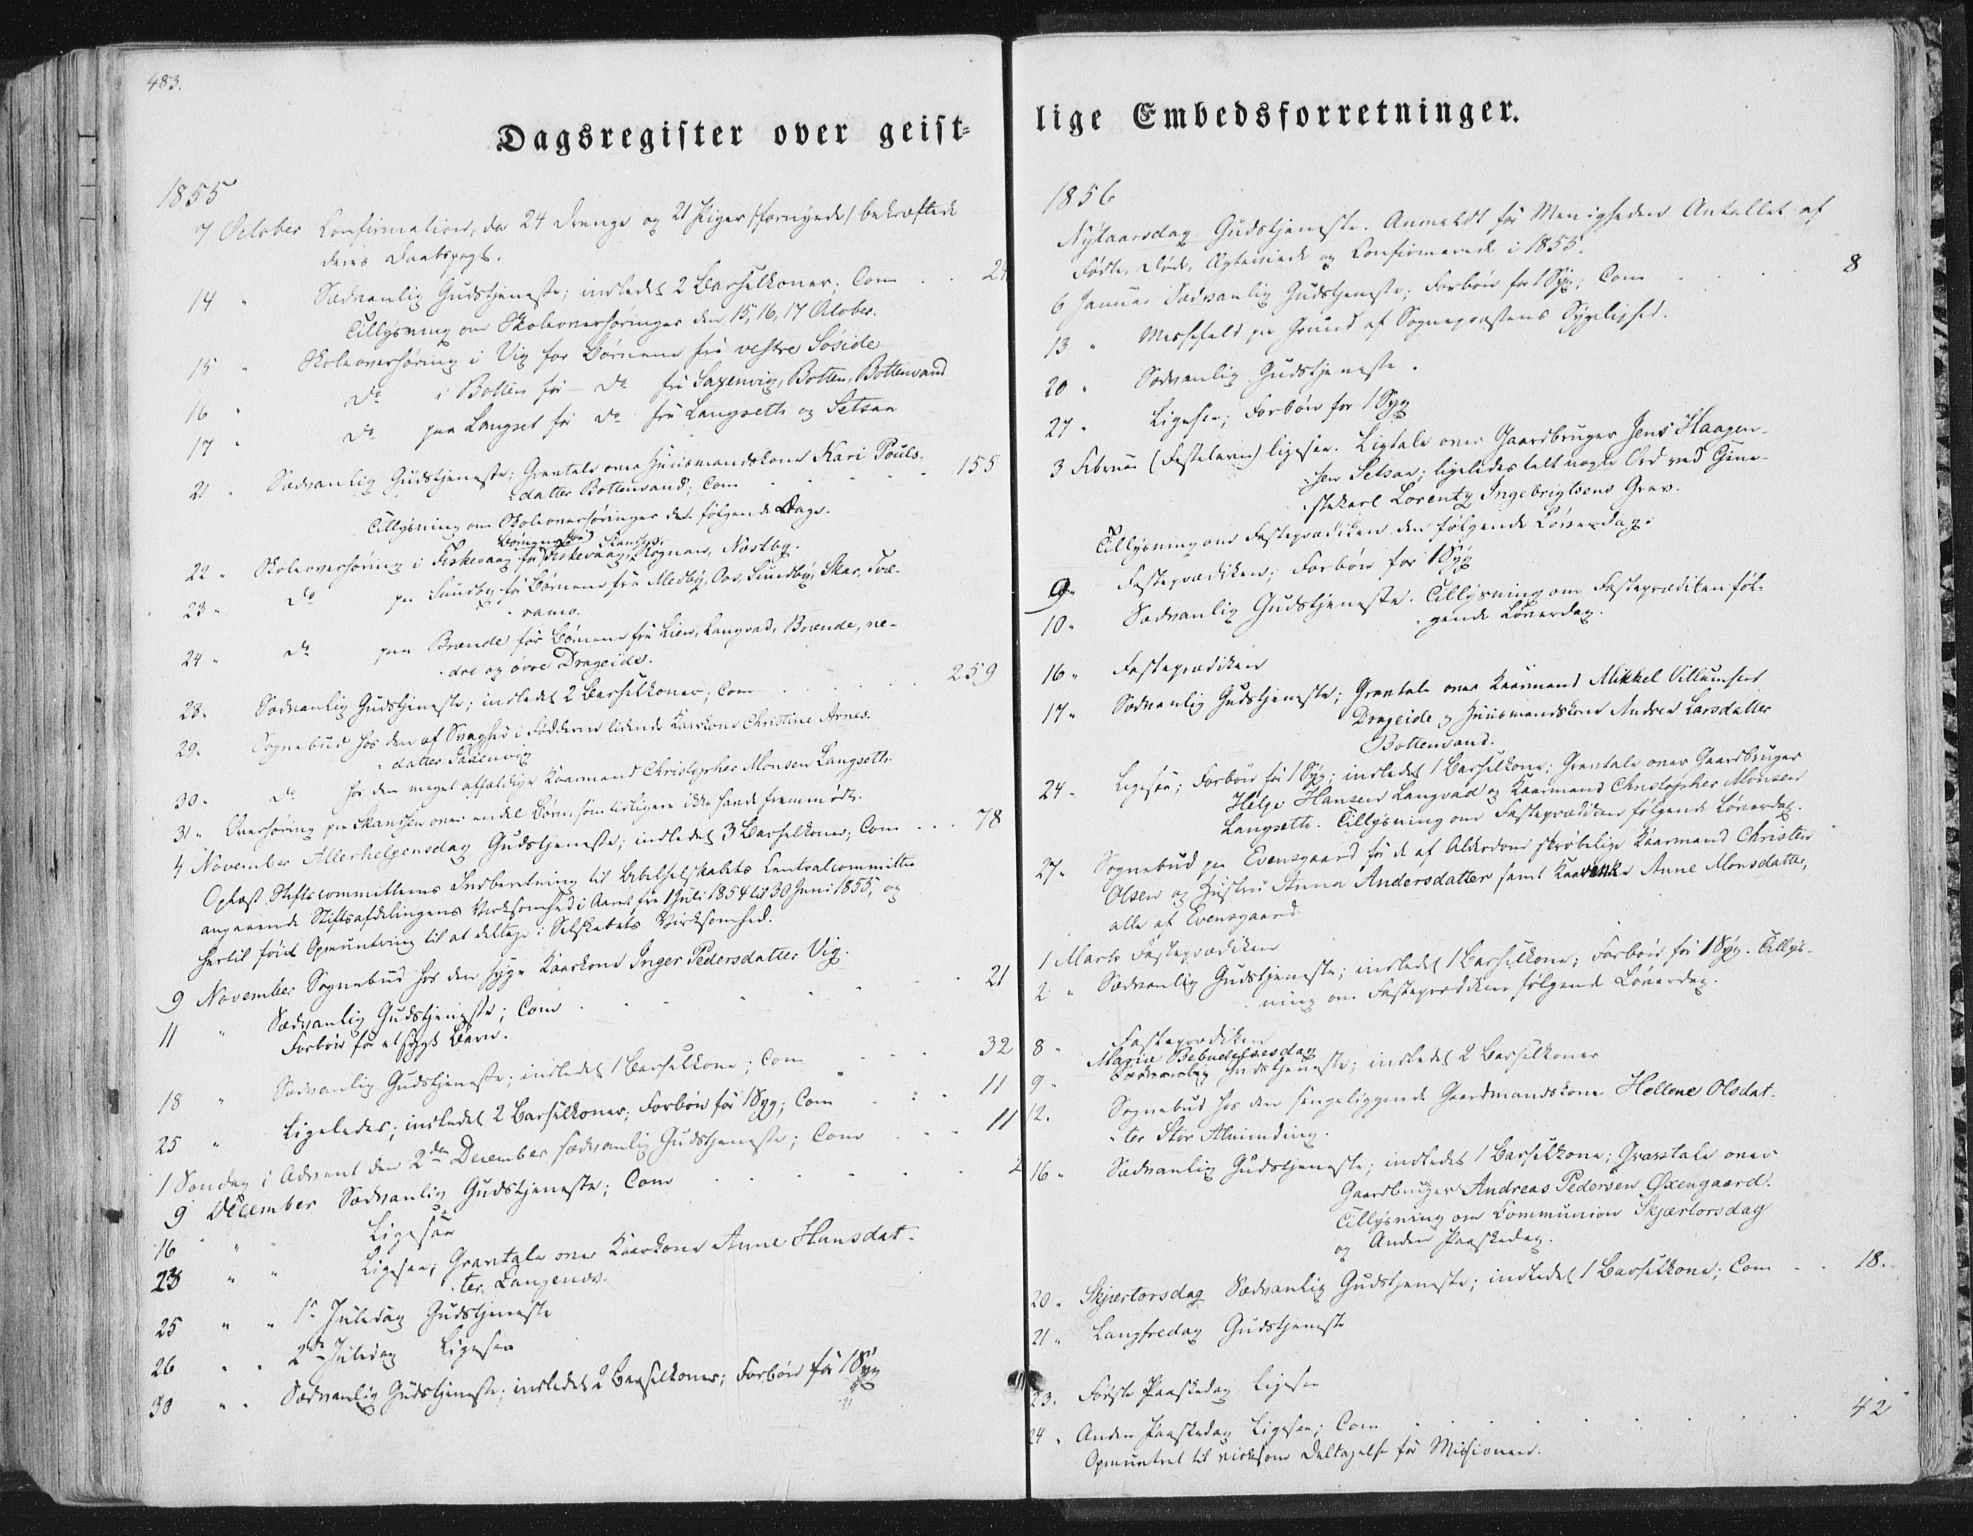 483.
Dagsregister over geist-
1855
7 October Confirmation, da 24 Drenge og 21 Piger (fornyede) bekræftede
deres Daabspagt.
14 " Sædvanlig Gudstjeneste; indledet 2 Barselkoner; Com . . 24
Tillysning om Skoleoverhøringer den 15, 16, 17 October.
15 " Skoleoverhøring i Vig for Børnene fra vestre Søside
16 " Do i Botten for Do fra Saxenvig, Botten, Bottenvand
17 " Do paa Langset for Do fra Langseth og Setsaa
21 " Sædvanlig Gudstjeneste; Gravtale over Huusmandskone Kari Pouls-
datter Bottenvand; Com . . . . 155
Tillysning om Skoleoverhøringer de følgende Dage.
22 " Skoleoverhøring i Fiskevaag for Børnene fra Fiskevaag, Rognan, Næstby.
23 " Do paa Sundby for Børnene fra Medby, Os, Sundby, Skar, Tve-
raamo.
24 " Do paa Brænde for Børnene fra Lien, Langvad, Brænde, ne-
dre og øvre Drageide.
28. Sædvanlig Gudstjeneste; indledet 2 Barselkoner; Com . . . . 259
29. Sognebud hos den af Svaghed i Fødderne lidende Kaarkone Christine Arnes-
datter Saxenvig
30. Do hos den meget affældige Kaarmand Christopher Monsen Langseth.
31 " Overhøring paa Skandsen over endel Børn, som tidligere ikke havde fremmødt.
4 November Allerhelgensdag Gudstjeneste; indledet 3 Barselkoner; Com . . . 78
Oplæst Stiftscommitteens Indberetning til Bibelselskabets Centralcommitte
angaaende Stiftsafdelingens Virksomhed i Aaret fra 1 Juli 1854 til 30 Juni 1855, og
hertil føiet Opmuntring til at deltage i Selskabets Virksomhed.
9 November Sognebud hos den syge Kaarkone Inger Pedersdatter Vig.
11 " Sædvanlig Gudstjeneste; Com . . . . . . 21
Forbøn for et sygt Barn.
18 " Sædvanlig Gudstjeneste; indledet 1 Barselkone; Com . . . 32
25 " Ligeledes; indledet 2 Barselkoner; Forbøn for 1 Syg; Com . . . 11
1 Søndag i Advent den 2den December sædvanlig Gudstjeneste; Com . . . 11
9 December Sædvanlig Gudstjeneste; Com . . . . . 2
16 " " Ligesaa
23 " " Ligesaa; Gravtale over Kaarkone Anne Hansdat-
ter Langenæs.
25 " " 1ste Juledag Gudstjeneste
26 " " 2den Juledag Ligesaa
30 " " Sædvanlig Gudstjeneste; indledet 2 Barselkoner; Forbøn for 1 Syg
lige Embedsforretninger.
1856
Nytaarsdag Gudstjeneste. Anmeldt for Menigheden Antallet af
Fødte, Døde, Ægteviede og Confirmerede i 1855.
6 Januar Sædvanlig Gudstjeneste; Forbøn for 1 Syg; Com . . . 8
13 " Messefald paa Grund af Sognepræstens Sygelighed.
20 " Sædvanlig Gudstjeneste.
27 " Ligesaa; Forbøn for 1 Syg
3 Februar (Fastelavn) ligesaa. Ligtale over Gaardbruger Jens Haagen-
sen Setsaa; ligeledes talt nogle Ord ved Tjene-
stekarl Lorentz Ingebrigtsens Grav.
Tillysning om Fasteprædiken den følgende Løverdag.
9 " Fasteprædiken; Forbøn for 1 Syg
10 " Sædvanlig Gudstjeneste. Tillysning om Fasteprædiken føl-
gende Løverdag.
16 " Fasteprædiken
17 " Sædvanlig Gudstjeneste; Gravtale over Kaarmand Mikkel Villumsen
Drageide og Huusmandskone Andrea Larsdatter
Bottenvand.
24 " Ligesaa; Forbøn for 1 Syg; indledet 1 Barselkone; Gravtale over Gaardbruger
Helge Hansen Langvad og Kaarmand Christopher Monsen
Langseth. Tillysning om Fasteprædiken følgende Løverdag.
27 " Sognebud paa Evensgaard for de af Alderdom skrøbelige Kaarmand Christen
Olsen og Hustru Anna Andersdatter samt Kaarenke Anne Monsdatter,
alle af Evensgaard.
1 Marts Fasteprædiken
2 " Sædvanlig Gudstjeneste; indledet 1 Barselkone; Forbøn for 1 Syg. Tillys-
ning om Fasteprædiken følgende Løverdag.
8 " Fasteprædiken
Mariæ Bebudelsesdag
9 " Sædvanlig Gudstjeneste; indledet 2 Barselkoner
12. Sognebud hos den sengeliggende Gaardmandskone Hellene Olsdat-
ter Stor Alminding.
16 " Sædvanlig Gudstjeneste; indledet 1 Barselkone; Gravtale over
Gaardbruger Andreas Pedersen Øxengaard.
Tillysning om Communion Skjærtorsdag
og Anden Paaskedag.
20 " Skjærtorsdag Sædvanlig Gudstjeneste; indledet 1 Barselkone; Com . . 18.
21 " Langfredag Gudstjeneste
23. Første Paaskedag Ligesaa
24 " Anden Paaskedag Ligesaa; Com . . . . . . 42
Opmuntret til virksom Deltagelse for Missionen.